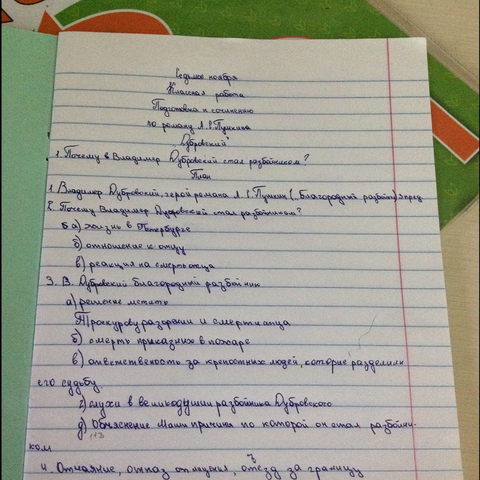 Седьмое ноября
Классная работа
Подготовка к сочинению
по роману А.С.Пушкина
Дубровский"
1. Почему в Владимир Дубровский стал разбойником?
План
1. Владимир Дубровский, герой романа А.С. Пушкин (Благородный разбойн)
2. Почему Владимир Дубровский стал разбойником?
а) жизнь в Петербурге
б) отношение к отцу
в) реакция на смерть отца
3. В. Дубровский благородный разбойник
а) решение мстить
Троекурову разорении и смерти отца
б) смерть приказных в пожаре
в) ответственость за крепостных людей, которие разделили
его судьбу
г) слухи в великодушии разбойника Дубровского
д) Обьяснение Маши причины по которой он стал разбойни-
ком
4. Отчаяние, отказ от мщения, отъезд за границу